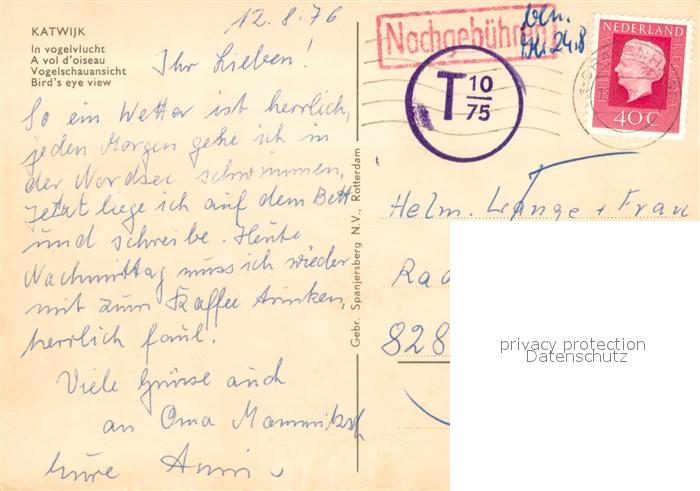 12.8.76
KATWIJK
In vogelvlucht
A vol d'oiseau
Vogelschauansicht
Bird's eye view
Ihr Lieben!
So ein Wetter ist herrlich,
jeden Morgen gehe ich in
der Nordsee schwimmen,
jetzt liege ich auf dem Bett
und schreibe. Heute
Nachmittag muss ich wieder
mit zum Kaffee trinken,
herrlich faul.
Viele Grüsse auch
an Oma
Eure
Gebr. Spanjersberg N.V., Rotterdam
Nachgebühren
24.8
T 10
75
NEDERLAND
40C
Helm. Lange + Frau
Rad
828
privacy protection
Datenschutz